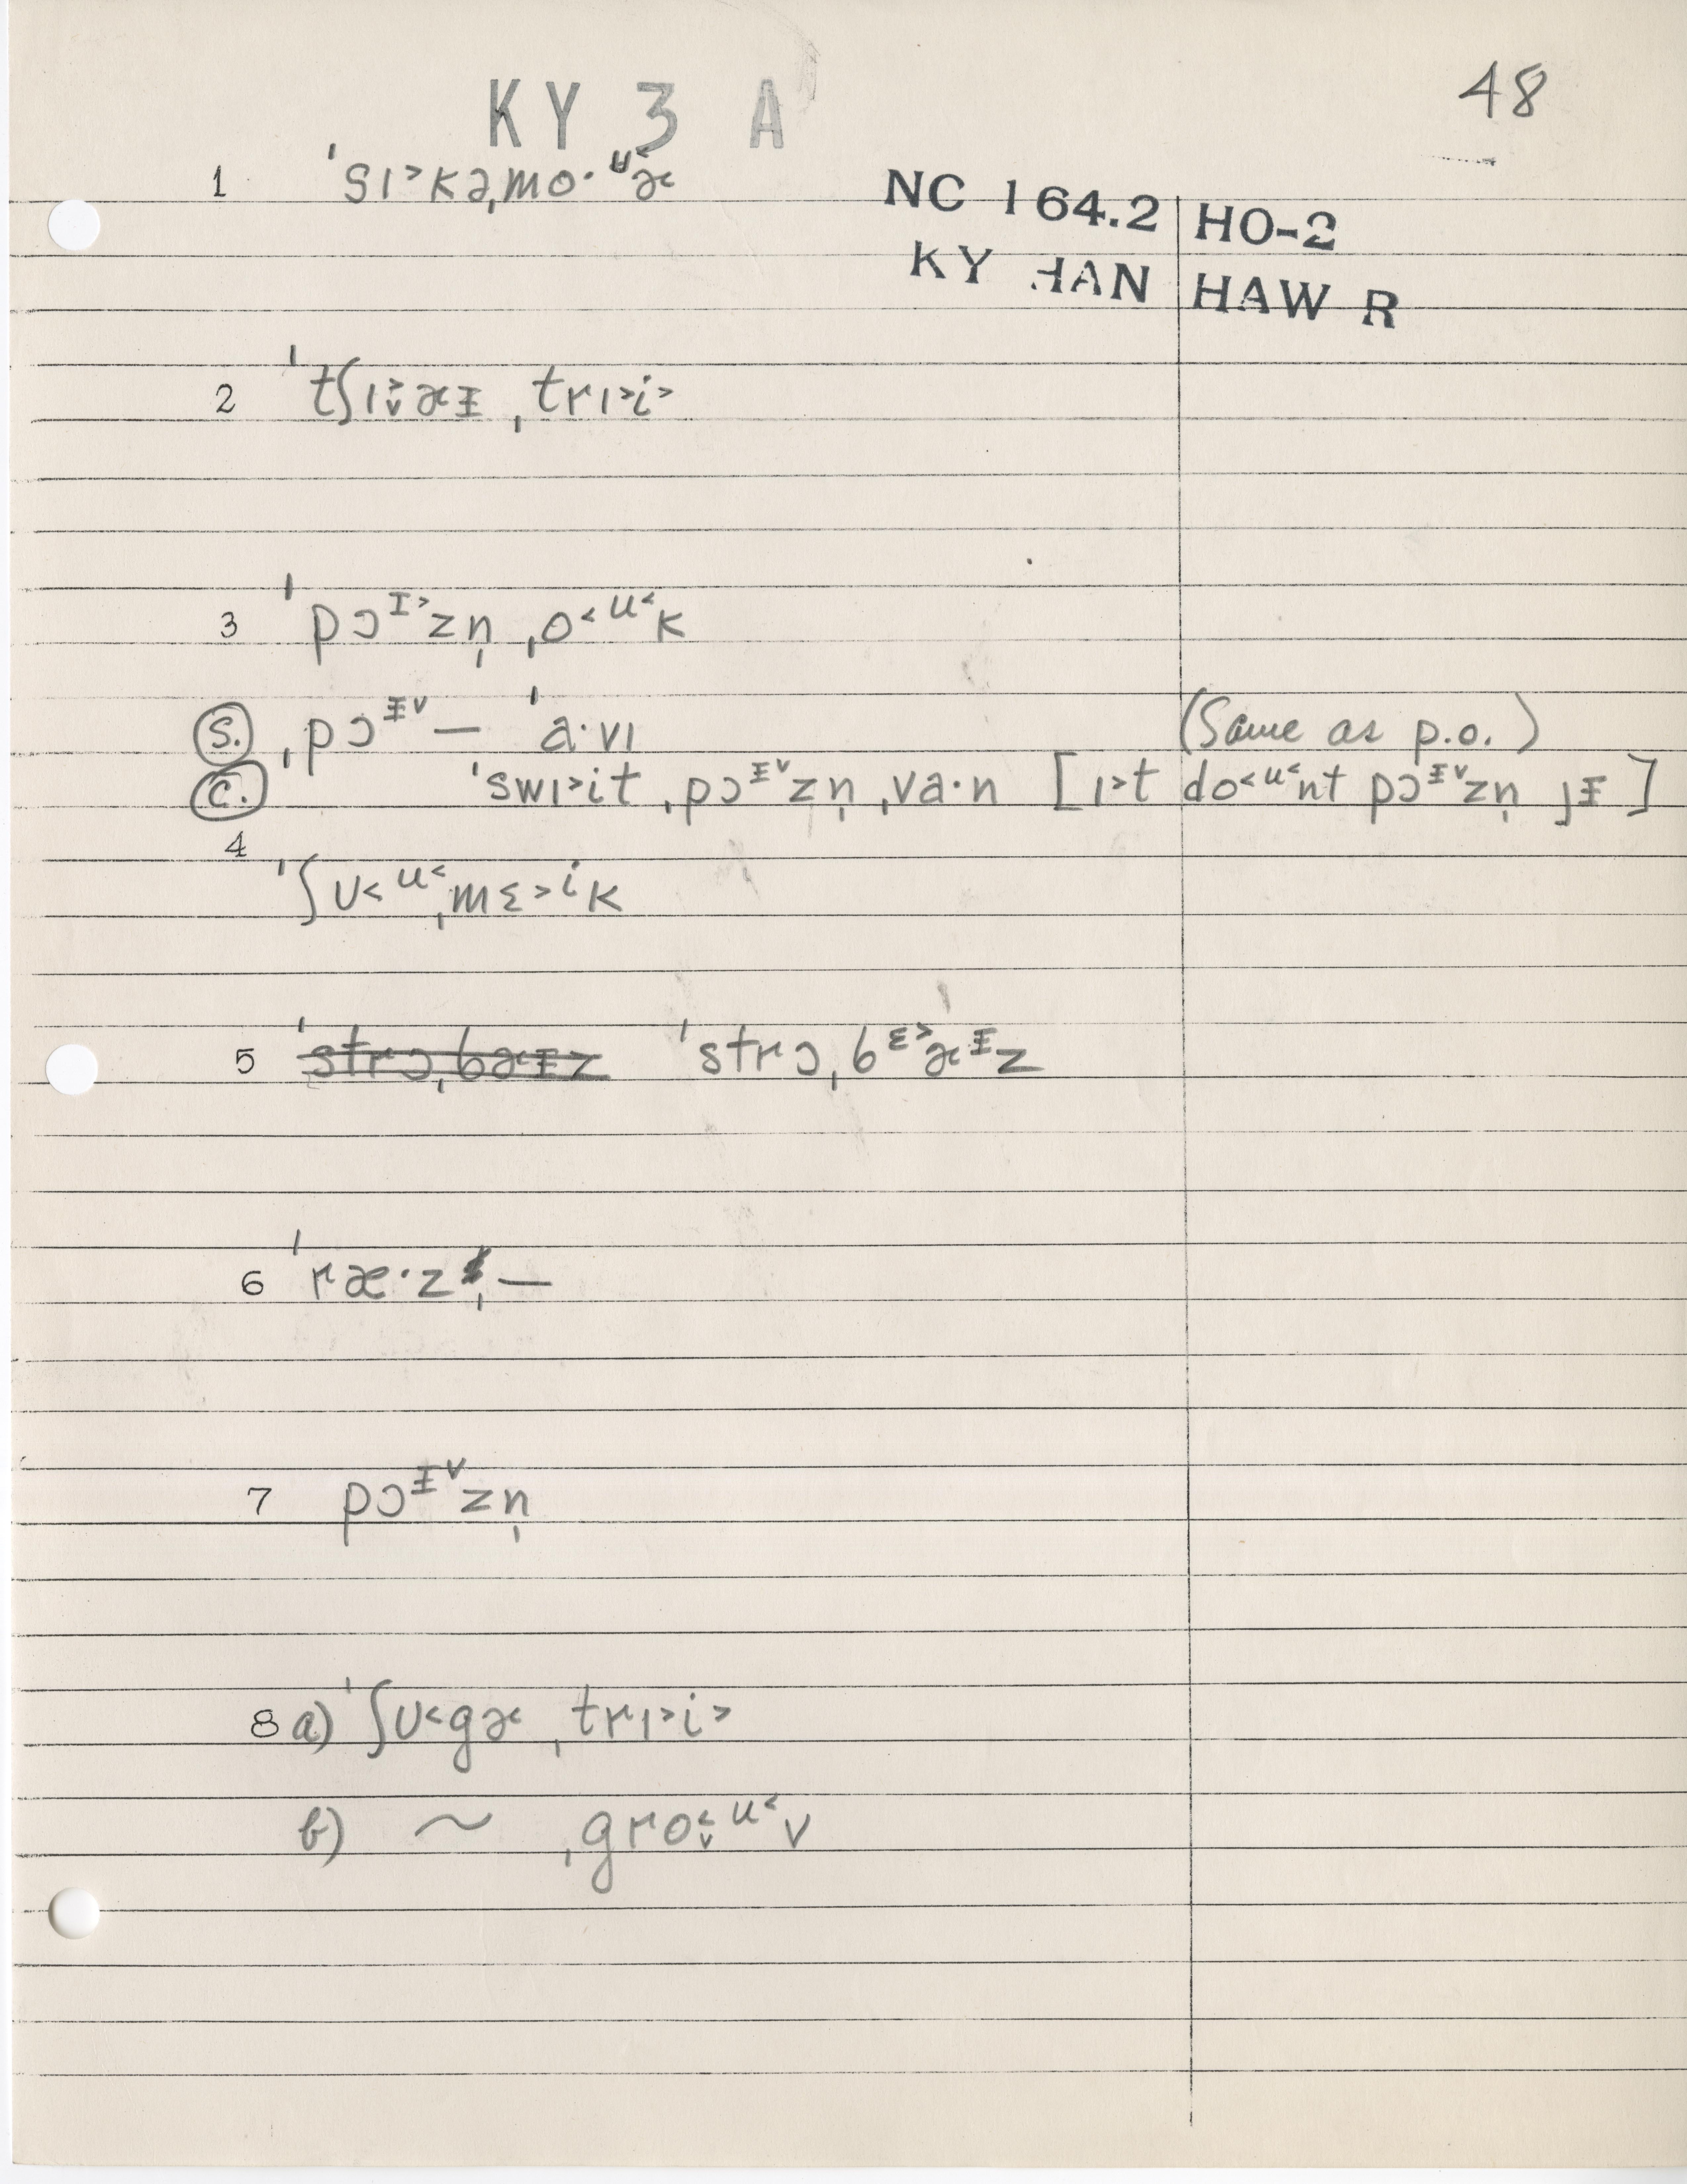 KY 3 A
48
1 ˈsɪ˃kəˌmo·ᵾ˂ɚ
NC 164.2 | HO-2
KY HAN | HAW R
2 ˈtʃɪ̬˃ɚᵻ ˌtrɪ˃i˃
3 ˈpɔᴵ˃zn̩ ˌo˂ᵘ˂k
(S.) ˌpɔᵻ˅ — ˈa·vɪ (Same as p.o.)
(C.) ˈswɪ˃it ˌpɔᵻ˅zn̩ ˌva·n [ɪ˃t do˂ᵘ˂nt pɔᵻ˅zn̩ jᵻ]
4 ˈʃʊ˂ᵘ˂ˌmɛ˃ⁱk
5 ˈstrɔˌbɚᵻz ˈstrɔˌbᵋ˃ɚᵻz
6 ˈræ·zˌ—
7 pɔᵻ˅zn̩
8 a) ˈʃʊ˂gɚ ˌtrɪ˃i˃
b) ~ ˌgro̬˂ᵘ˂v